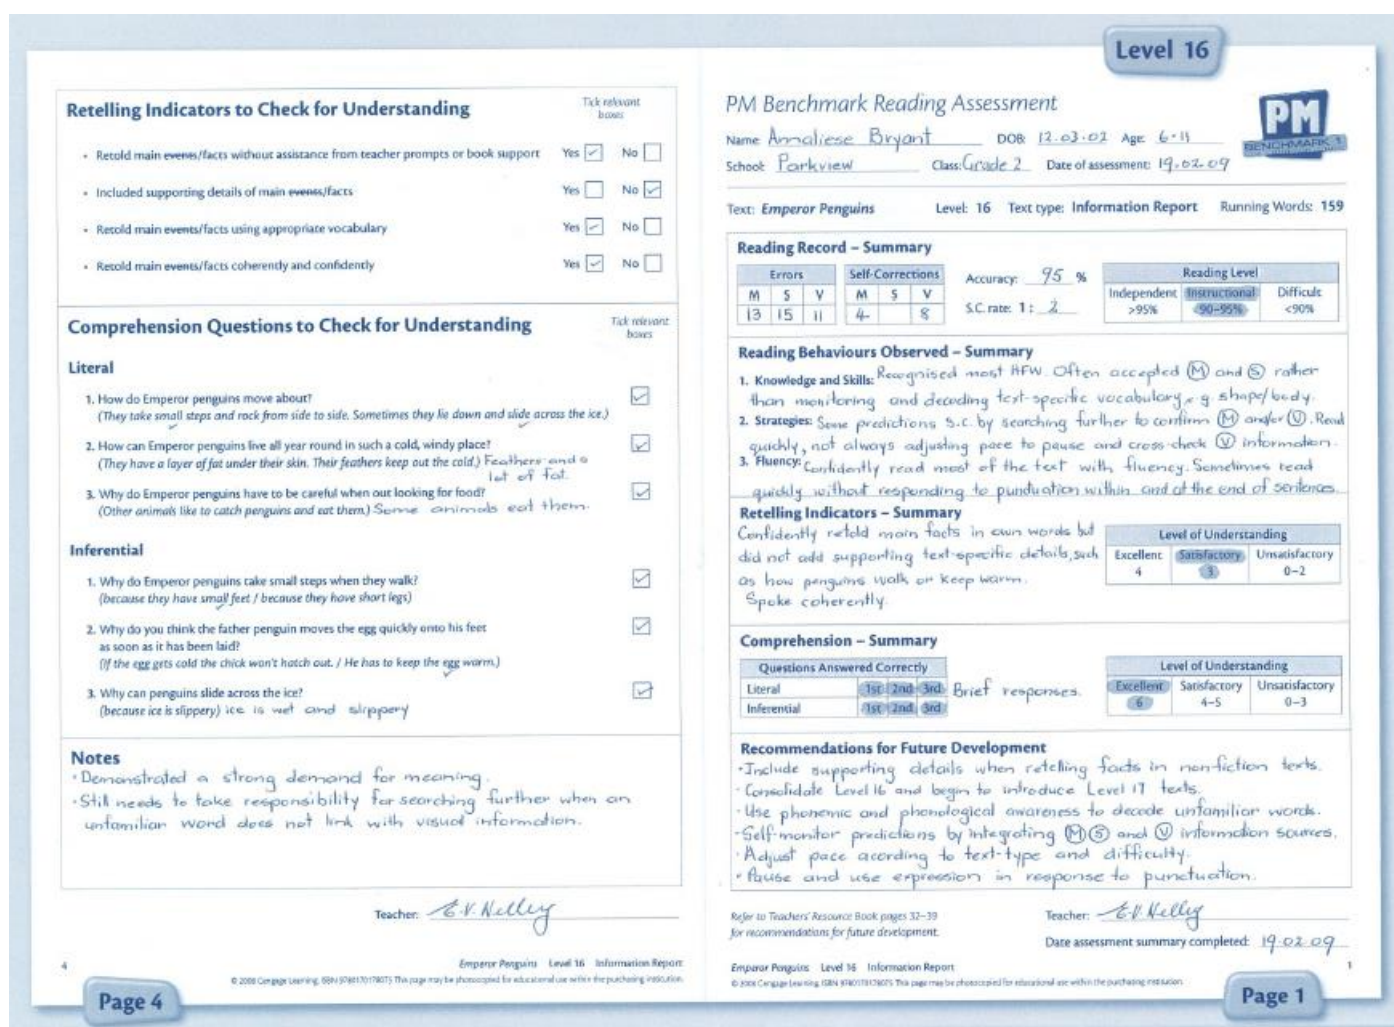 Level 16
Retelling Indicators to Check for Understanding
Tick relevant
boxes
• Retold main events/facts without assistance from teacher prompts or book support Yes ✓ No
• Included supporting details of main events/facts Yes No ✓
• Retold main events/facts using appropriate vocabulary Yes ✓ No
• Retold main events/facts coherently and confidently Yes ✓ No
Comprehension Questions to Check for Understanding
Tick relevant
boxes
Literal
1. How do Emperor penguins move about?
(They take small steps and rock from side to side. Sometimes they lie down and slide across the ice.)
2. How can Emperor penguins live all year round in such a cold, windy place?
(They have a layer of fat under their skin. Their feathers keep out the cold.) Feathers and a
lot of fat.
3. Why do Emperor penguins have to be careful when out looking for food?
(Other animals like to catch penguins and eat them.) Some animals eat them.
Inferential
1. Why do Emperor penguins take small steps when they walk?
(because they have small feet / because they have short legs)
2. Why do you think the father penguin moves the egg quickly onto his feet
as soon as it has been laid?
(If the egg gets cold the chick won't hatch out. / He has to keep the egg warm.)
3. Why can penguins slide across the ice?
(because ice is slippery) ice is wet and slippery
Notes
• Demonstrated a strong demand for meaning.
• Still needs to take responsibility for searching further when an
unfamiliar word does not link with visual information.
Teacher: E.V. Nelley
4
Emperor Penguins Level 16 Information Report
© 2008 Cengage Learning. ISBN 9780170178075 This page may be photocopied for educational use within the purchasing institution.
Page 4
PM Benchmark Reading Assessment
PM
BENCHMARK 1
Name: Annaliese Bryant DOB: 12.03.02 Age: 6.11
School: Parkview Class: Grade 2 Date of assessment: 19.02.09
Text: Emperor Penguins Level: 16 Text type: Information Report Running Words: 159
Reading Record – Summary
Errors Self-Corrections
M S V M S V
13 15 11 4 8
Accuracy: 95 %
S.C. rate: 1: 2
Reading Level
Independent Instructional Difficult
>95% 90–95% <90%
Reading Behaviours Observed – Summary
1. Knowledge and Skills: Recognised most HFW. Often accepted M and S rather
than monitoring and decoding text-specific vocabulary e.g. shape/body.
2. Strategies: Some predictions s.c. by searching further to confirm M and/or V. Read
quickly, not always adjusting pace to pause and cross-check V information.
3. Fluency: Confidently read most of the text with fluency. Sometimes read
quickly without responding to punctuation within and at the end of sentences.
Retelling Indicators – Summary
Confidently retold main facts in own words but
did not add supporting text-specific details, such
as how penguins walk or keep warm.
Spoke coherently.
Level of Understanding
Excellent Satisfactory Unsatisfactory
4 3 0–2
Comprehension – Summary
Questions Answered Correctly
Literal 1st 2nd 3rd
Inferential 1st 2nd 3rd
Brief responses.
Level of Understanding
Excellent Satisfactory Unsatisfactory
6 4–5 0–3
Recommendations for Future Development
• Include supporting details when retelling facts in non-fiction texts.
• Consolidate Level 16 and begin to introduce Level 17 texts.
• Use phonemic and phonological awareness to decode unfamiliar words.
• Self-monitor predictions by integrating M S and V information sources.
• Adjust pace acording to text-type and difficulty.
• Pause and use expression in response to punctuation.
Refer to Teachers' Resource Book pages 32–39
for recommendations for future development.
Teacher: E.V. Nelley
Date assessment summary completed: 19.02.09
Emperor Penguins Level 16 Information Report
1
© 2008 Cengage Learning. ISBN 9780170178075 This page may be photocopied for educational use within the purchasing institution.
Page 1